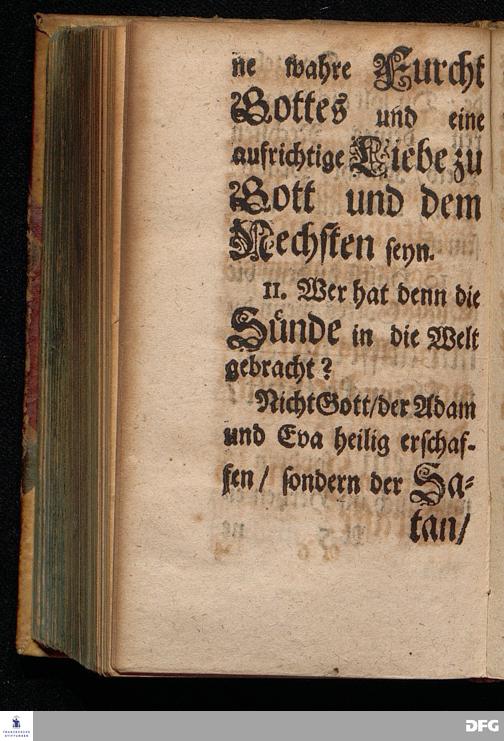 ne wahre Furcht
Gottes und eine
aufrichtige Liebe zu
Gott und dem
Nechsten seyn.
11. Wer hat denn die
Sünde in die Welt
gebracht?
Nicht Gott/der Adam
und Eva heilig erschaf-
fen/ sondern der Sa-
tan/
FRANCKESCHE
STIFTUNGEN
DFG